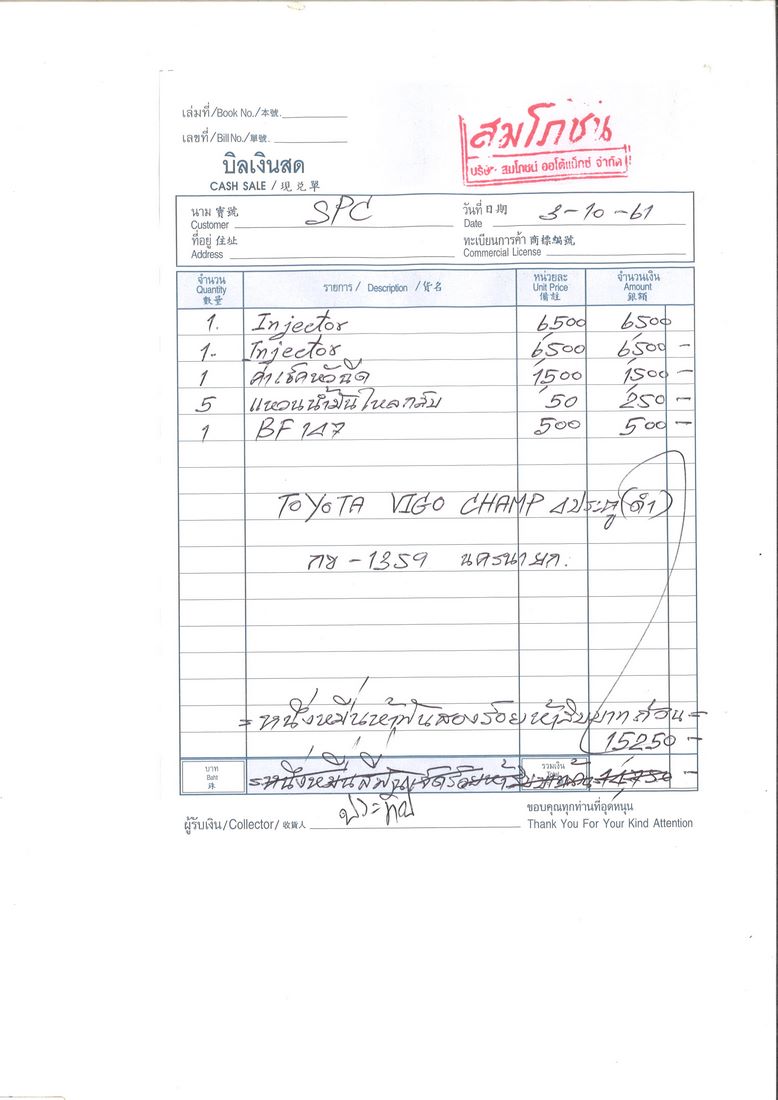 เล่มที่/Book No./本號.
เลขที่/Bill No./單號.
สมโภชน์
บริษัท สมโภชน์ ออโต้แม็กซ์ จำกัด
บิลเงินสด
CASH SALE / 現兌單
นาม 寶號 SPC วันที่ 日期 3-10-61
Customer Date
ที่อยู่ 住址 ทะเบียนการค้า 商標編號
Address Commercial License
จำนวน รายการ / Description / 貨名 หน่วยละ จำนวนเงิน
Quantity Unit Price Amount
數量 備註 銀額
1. Injector 6500 6500
1- Injector 6500 6500 -
1 ค่าเช็คหัวฉีด 1500 1500 -
5 แหวนน้ำมันไหลกลับ 50 250 -
1 BF 147 500 500 -
TOYOTA VIGO CHAMP 4ประตู(ดำ)
กข - 1359 นครนายก.
= หนึ่งหมื่นห้าพันสองร้อยห้าสิบบาทถ้วน =
15250 -
บาท รวมเงิน
Baht
珠
= หนึ่งหมื่นสี่พันเจ็ดร้อยห้าสิบบาทถ้วน 14750 -
ผู้รับเงิน/Collector/收貨人
ขอบคุณทุกท่านที่อุดหนุน
Thank You For Your Kind Attention